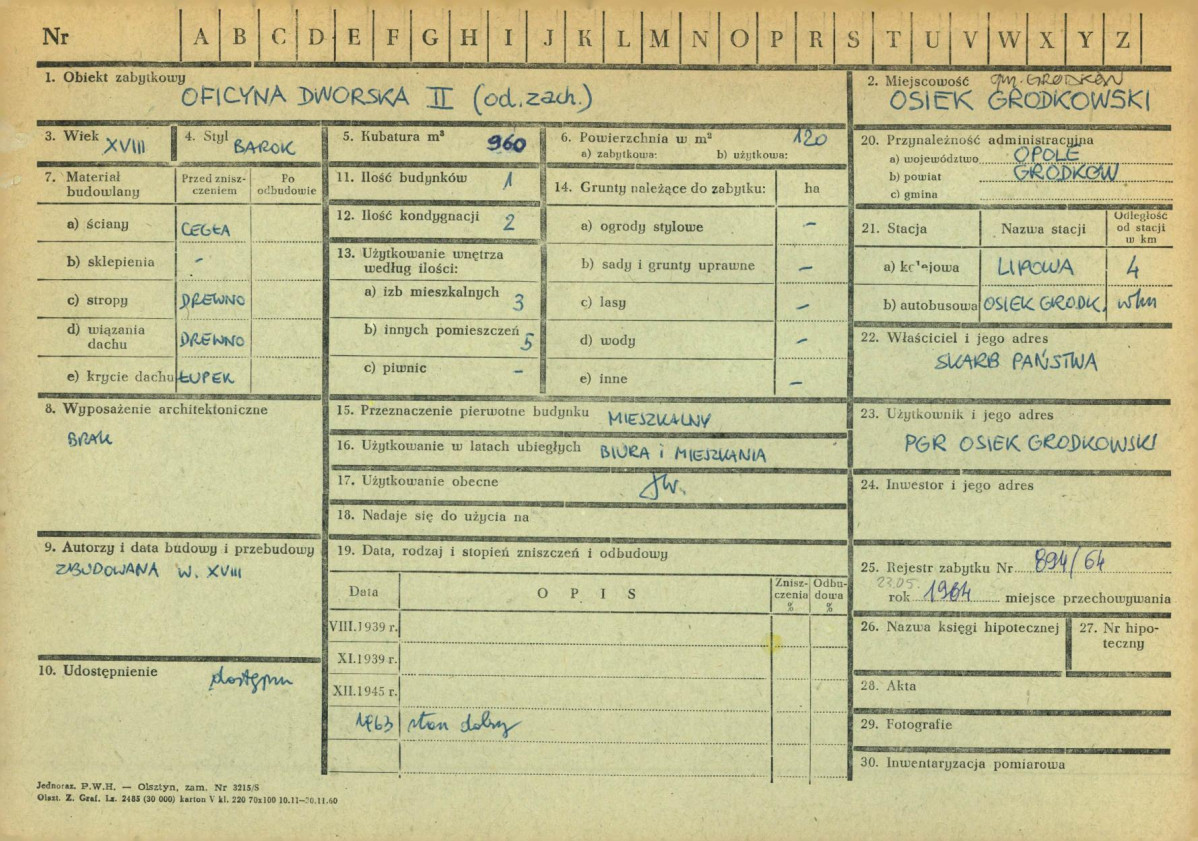 Nr A B C D E F G H I J K L M N O P R S T U V W X Y Z
1. Obiekt zabytkowy
OFICYNA DWORSKA II (od.zach.)
2. Miejscowość gm. GRODKÓW
OSIEK GRODKOWSKI
3. Wiek XVIII
4. Styl BAROK
5. Kubatura m³ 960
6. Powierzchnia w m² 120
a) zabytkowa: b) użytkowa:
7. Materiał budowlany
Przed zniszczeniem
Po odbudowie
a) ściany CEGŁA
b) sklepienia -
c) stropy DREWNO
d) wiązania dachu DREWNO
e) krycie dachu ŁUPEK
8. Wyposażenie architektoniczne
BRAK
9. Autorzy i data budowy i przebudowy
ZBUDOWANA W. XVIII
10. Udostępnienie
dostępny
11. Ilość budynków 1
12. Ilość kondygnacji 2
13. Użytkowanie wnętrza według ilości:
a) izb mieszkalnych 3
b) innych pomieszczeń 5
c) piwnic -
14. Grunty należące do zabytku: ha
a) ogrody stylowe -
b) sady i grunty uprawne -
c) lasy -
d) wody -
e) inne -
15. Przeznaczenie pierwotne budynku MIESZKALNY
16. Użytkowanie w latach ubiegłych BIURA i MIESZKANIA
17. Użytkowanie obecne Jw.
18. Nadaje się do użycia na
19. Data, rodzaj i stopień zniszczeń i odbudowy
Data OPIS Zniszczenia % Odbudowa %
VIII.1939 r.
XI.1939 r.
XII.1945 r.
1963 stan dobry
20. Przynależność administracyjna
a) województwo OPOLE
b) powiat GRODKÓW
c) gmina
21. Stacja Nazwa stacji Odległość od stacji w km
a) kolejowa LIPOWA 4
b) autobusowa OSIEK GRODK. w/m
22. Właściciel i jego adres
SKARB PAŃSTWA
23. Użytkownik i jego adres
PGR OSIEK GRODKOWSKI
24. Inwestor i jego adres
25. Rejestr zabytku Nr 894/64
23.05.
rok 1964 miejsce przechowywania
26. Nazwa księgi hipotecznej
27. Nr hipoteczny
28. Akta
29. Fotografie
30. Inwentaryzacja pomiarowa
Jednoraz. P.W.H. — Olsztyn, zam. Nr 3215/S
Olszt. Z. Graf. Lz. 2485 (30 000) karton V kl. 220 70x100 10.11—20.11.60